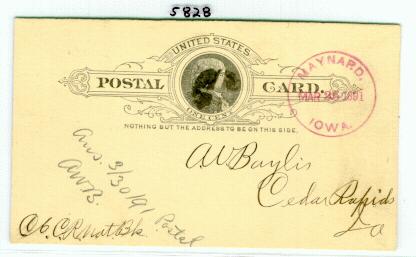 5828
UNITED STATES
POSTAL CARD.
ONE CENT
NOTHING BUT THE ADDRESS TO BE ON THIS SIDE.
MAYNARD,
MAR 25 1891
IOWA.
A W Baylis
Cedar Rapids
Ia
Ans. 3/30/91
AWB.
Postal
C.R. Nat. Bk